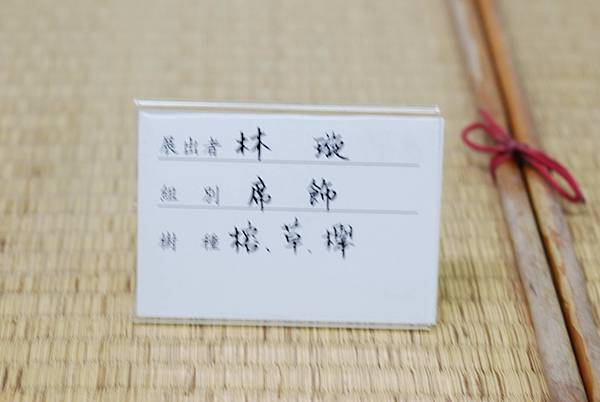 展出者 林 璇
組別 席飾
樹種 榕、草、櫸